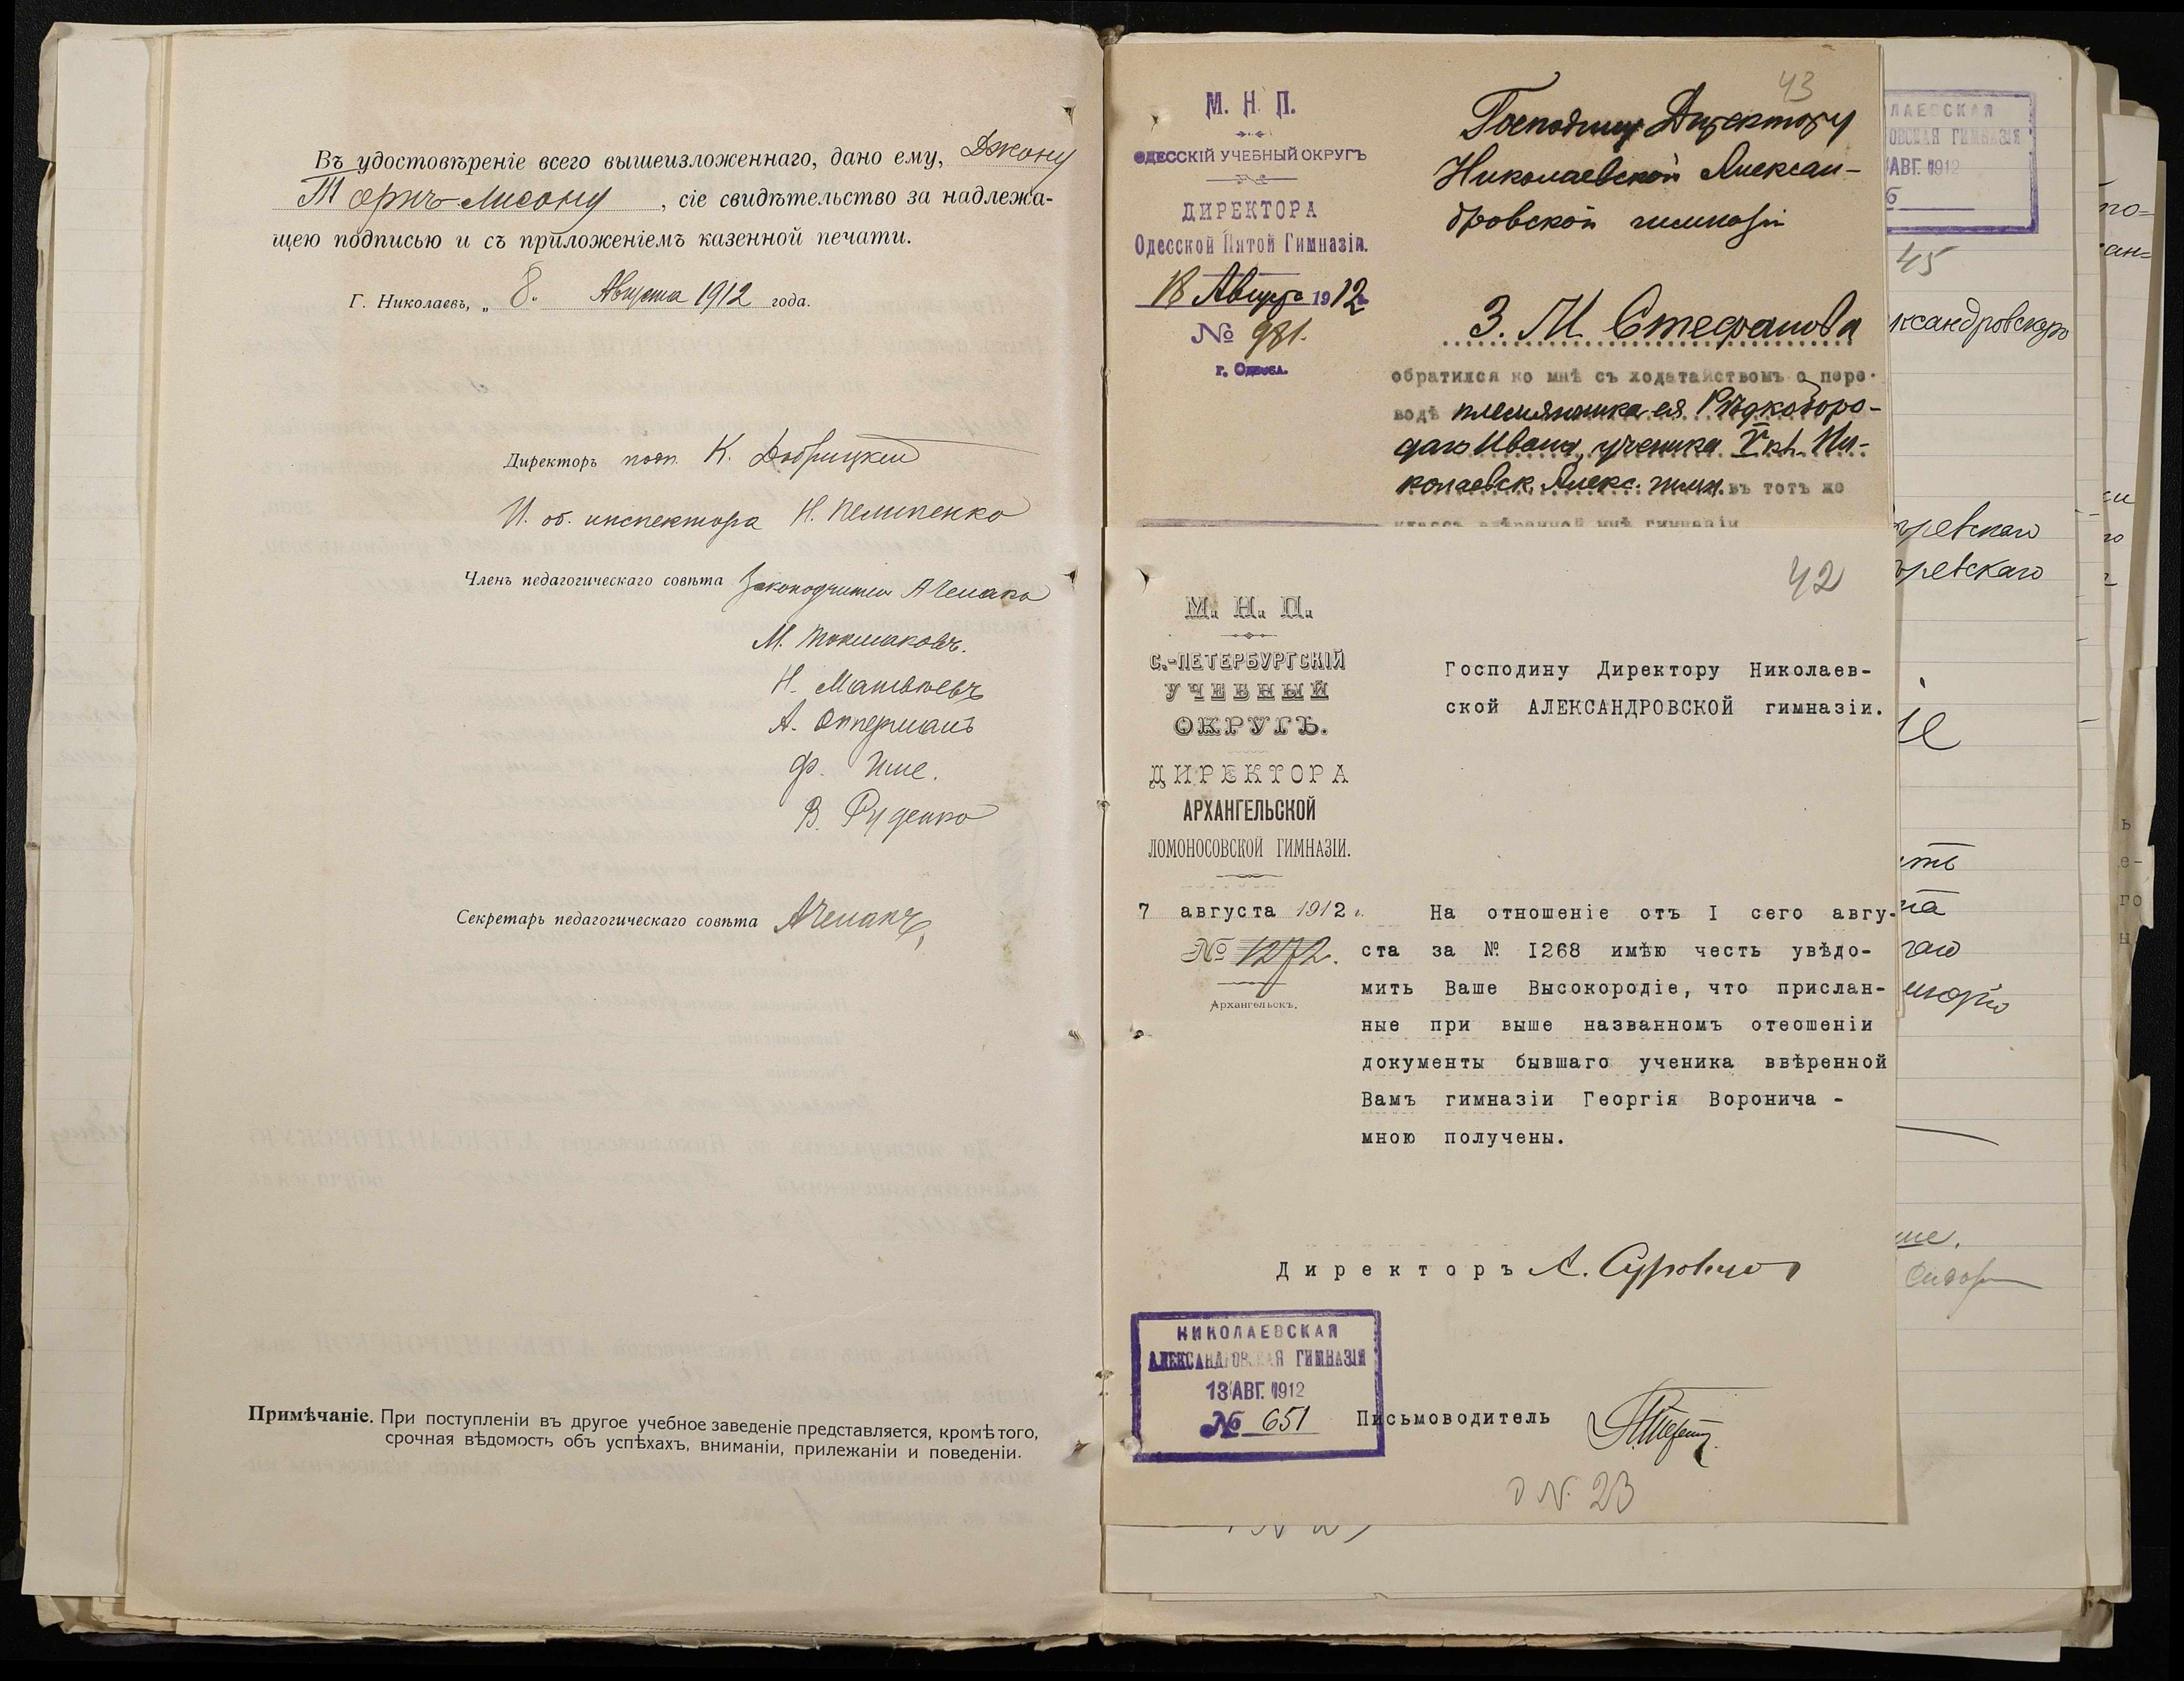 Въ удостовѣреніе всего вышеизложеннаго, дано ему, Джону
Тернъ-Лисону, сіе свидѣтельство за надлежа-
щею подписью и съ приложеніемъ казенной печати.
Г. Николаевъ, „ 8. Августа 1912 года.
Директоръ подп. К. Добрицкій
И. об. инспектора Н. Пелипенко
Членъ педагогическаго совѣта Законоучитель А Чемана
М. Токмаковъ.
Н. Матвѣевъ
А. Опперманъ
Ф. Ише.
В. Руденко
Секретарь педагогическаго совѣта
Примѣчаніе. При поступленіи въ другое учебное заведеніе представляется, кромѣ того,
срочная вѣдомость объ успѣхахъ, вниманіи, прилежаніи и поведеніи.
43
М. Н. П.
ОДЕССКІЙ УЧЕБНЫЙ ОКРУГЪ
ДИРЕКТОРА
Одесской Пятой Гимназіи.
18 Августа 1912
№ 981.
г. Одесса.
Господину Директору
Николаевской Алексан-
дровской гимназіи
З. М. Стефанова
обратился ко мнѣ съ ходатайствомъ о пере-
водѣ племянника ея Рѣдкоборо-
даго Ивана, ученика V кл. Ни-
колаевск. Алекс. гимн. въ тотъ же
классъ ввѣренной мнѣ гимназіи
42
М. Н. П.
С.-ПЕТЕРБУРГСКІЙ
УЧЕБНЫЙ
ОКРУГЪ.
ДИРЕКТОРА
АРХАНГЕЛЬСКОЙ
ЛОМОНОСОВСКОЙ ГИМНАЗІИ.
7 августа 1912 г.
№ 1272.
Архангельскъ.
Господину Директору Николаев-
ской АЛЕКСАНДРОВСКОЙ гимназіи.
На отношеніе отъ I сего авгу-
ста за № I268 имѣю честь увѣдо-
мить Ваше Высокородіе, что прислан-
ные при выше названномъ отеошеніи
документы бывшаго ученика ввѣренной
Вамъ гимназіи Георгія Воронича -
мною получены.
Директоръ
НИКОЛАЕВСКАЯ
АЛЕКСАНДРОВСКАЯ ГИМНАЗІЯ
13 АВГ. 1912
№ 651
Письмоводитель
N. 23
ЛАЕВСКАЯ
ОВСКАЯ ГИМНАЗІЯ
АВГ. 1912
45